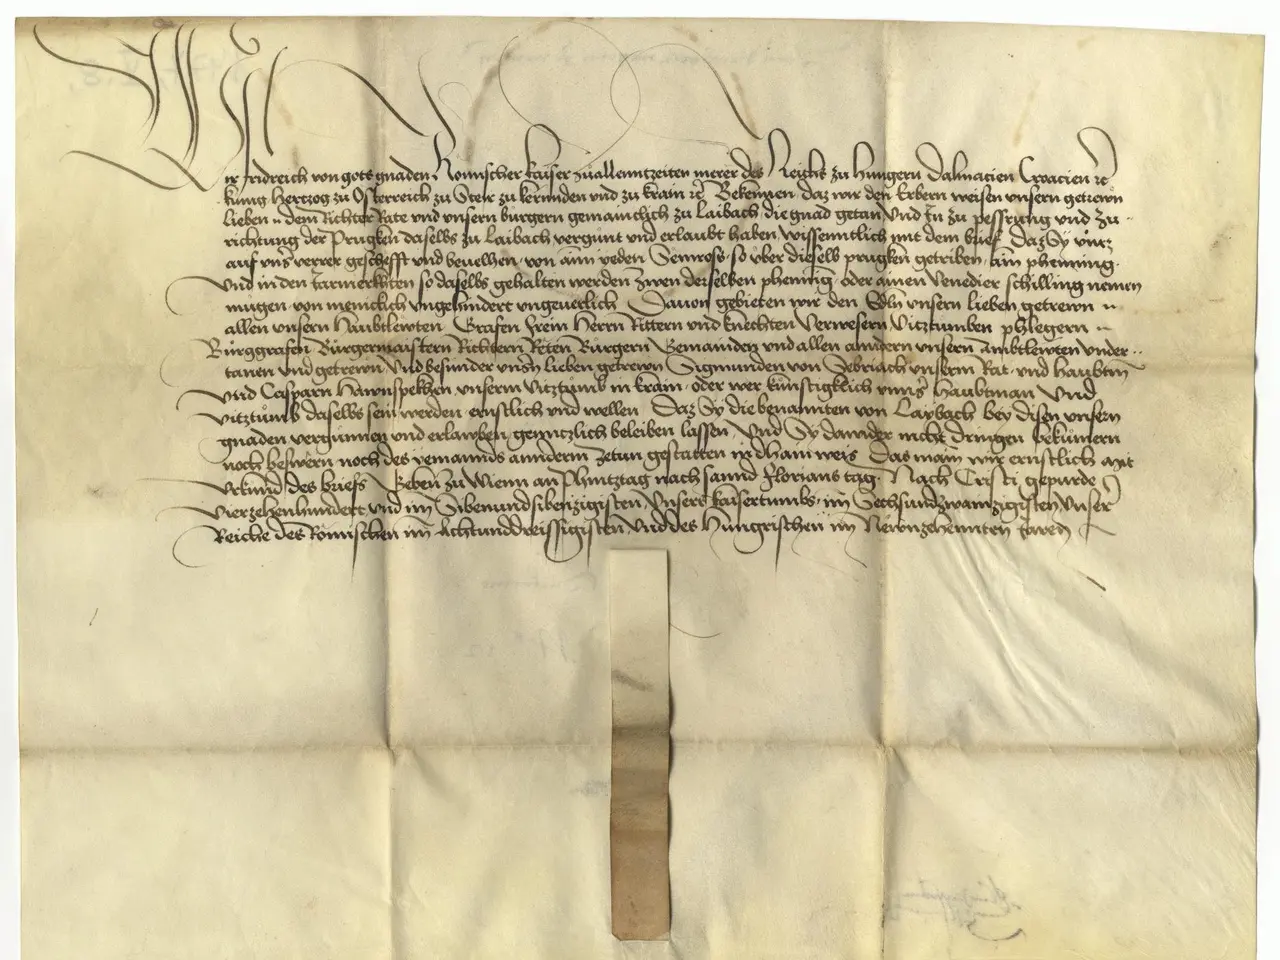 Wir Fridreich von gots gnaden Romischer kaiser zuallenntzeiten merer des Reichs zu Hungern Dalmacien Croacien etc
kunig Hertzog zu Osterreich zu Steir zu kernnden und zu krain etc Bekennen daz wir den Erbern weisen unsern getrewn
lieben n dem Richter Rate und unsern burgern gemainclich zu Laibach die gnad getan und In zu pessrung und zu
richtung der Prugken daselbs zu Laibach vergunt und erlaubt haben wissenntlich mit dem brief Daz Sy untz
auf unser verrer geschefft und bevelhen von ainn yeden Semross so uber dieselb prugken getriben ain phenning
Und in den Jarmerkhten so daselbs gehalten werden Zwen derselben phening oder ainen Venedier schilling nemen
mugen von menicklich ungehindert ungeverlich Davon gebieten wir den Edeln unsern lieben getrewn n
allen unsern Haubtlewten Grafen Frein Herrn Rittern und knechten Verwesern Vitztumben phlegern n
Burggrafen Burgermaistern Richtern Reten Burgern Gemainden und allen anndern unsern ambtlewten under
tanen und getrewn Und besunder unsern lieben getrewn Sigmunden von Sebriach unserm Rat und Haubtman
Und Casparn Hawnspekhen unserm vitztumb in krain oder wer kunftigklich unnser Haubtman Und
vitztumb daselbs sein werden ernstlich und wellen Daz Sy die benannten von Laybach bey disen unsern
gnaden vergunnen und erlawben genntzlich beleiben lassen Und Sy dawider nicht dringen bekumern
noch beswern noch des yemannds anndern zetun gestatten in dhain weis Das main wir ernstlich Mit
Urkund des briefs Geben zu Wienn an Phintztag nach sannd Florians tag Nach Cristi gepurde
Vierzehenhundert und im Sibenundsibenzigisten Unsers kaisertumbs im Sechsundzwainzigisten Unser
Reiche des Romischen im Achtunddreissigisten Und des Hungrischen im Newnzehennten Jaren